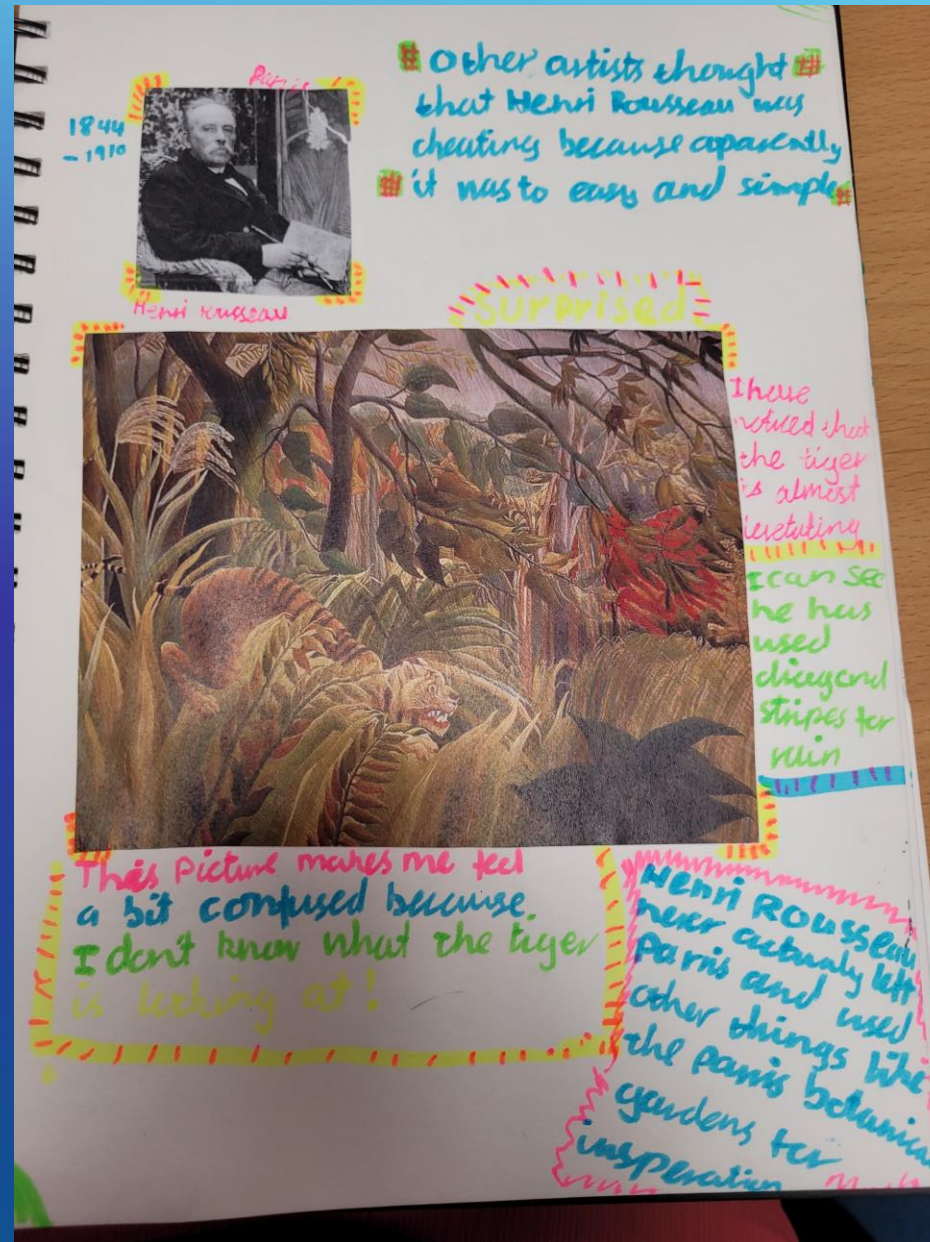 Paris
1844
- 1910
Henri rousseau
# Other artists thought #
that Henri Rousseau was
cheating because aparently
# it was to easy and simple #
Surprised
I have
noticed that
the tiger
is almost
levetating
I can see
he has
used
diagand
stripes for
rain
This Picture makes me feel
a bit confused because
I don't know what the tiger
is looking at!
Henri Rousseau
never actualy left
Paris and used
other things like
the paris botanica
gardens for
insperation